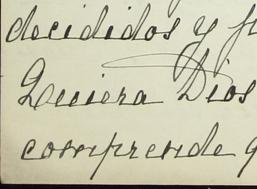 decididos y
Quiera Dios
comprende